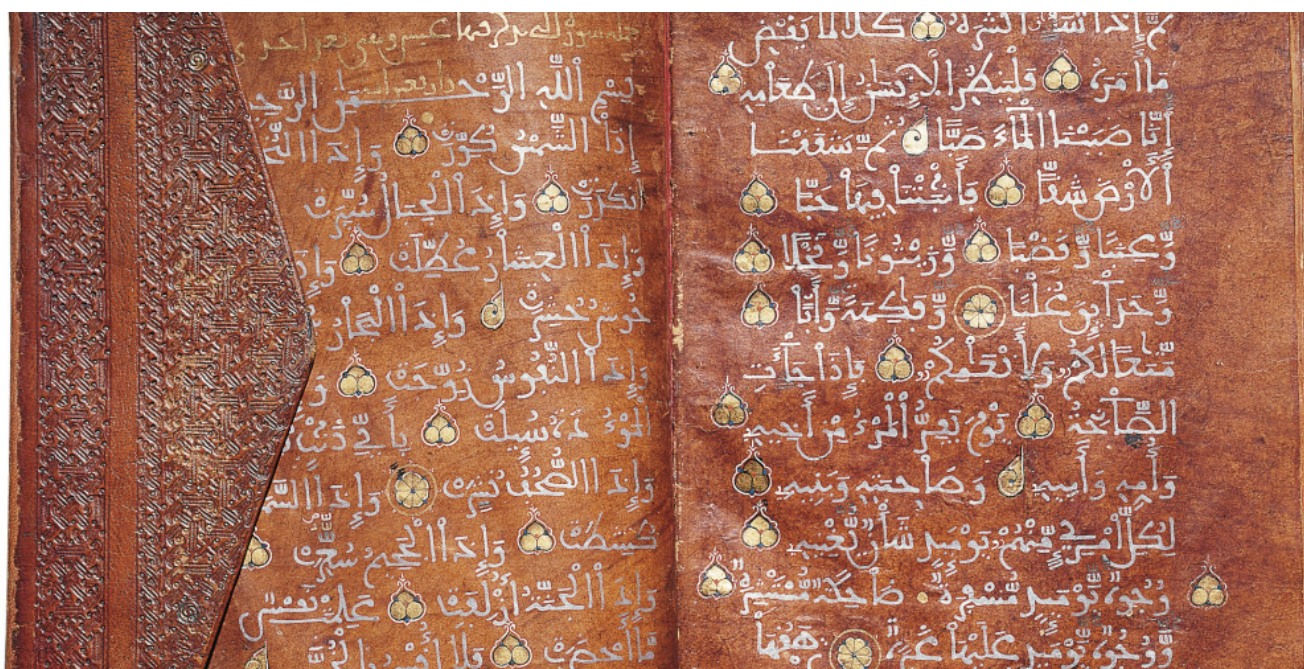 ثُمَّ إِذَا شَاءَ انشَرَهُ كَلَّا لَمَّا يَقْضِ
مَا أَمَرَهُ فَلْيَنظُرِ الْإِنسَٰنُ إِلَىٰ طَعَامِهِ
أَنَّا صَبَبْنَا الْمَاءَ صَبًّا ثُمَّ شَقَقْنَا
الْأَرْضَ شَقًّا فَأَنبَتْنَا فِيهَا حَبًّا
وَعِنَبًا وَقَضْبًا وَزَيْتُونًا وَنَخْلًا
وَحَدَائِقَ غُلْبًا وَفَٰكِهَةً وَأَبًّا
مَّتَٰعًا لَّكُمْ وَلِأَنْعَٰمِكُمْ فَإِذَا جَاءَتِ
الصَّاخَّةُ يَوْمَ يَفِرُّ الْمَرْءُ مِنْ أَخِيهِ
وَأُمِّهِ وَأَبِيهِ وَصَٰحِبَتِهِ وَبَنِيهِ
لِكُلِّ امْرِئٍ مِّنْهُمْ يَوْمَئِذٍ شَأْنٌ يُغْنِيهِ
وُجُوهٌ يَوْمَئِذٍ مُّسْفِرَةٌ ضَاحِكَةٌ مُّسْتَبْشِرَةٌ
وَوُجُوهٌ يَوْمَئِذٍ عَلَيْهَا غَبَرَةٌ تَرْهَقُهَا
بِسْمِ اللَّهِ الرَّحْمَٰنِ الرَّحِيمِ
إِذَا الشَّمْسُ كُوِّرَتْ وَإِذَا
انكَدَرَتْ وَإِذَا الْجِبَالُ سُيِّرَتْ
وَإِذَا الْعِشَارُ عُطِّلَتْ وَإِذَا
حُوشُ حُشِرَتْ وَإِذَا الْبِحَارُ
وَإِذَا النُّفُوسُ زُوِّجَتْ وَ
الْمَوْءُدَةُ سُئِلَتْ بِأَيِّ ذَنۢبٍ
وَإِذَا الصُّحُفُ نُشِرَتْ وَإِذَا
كُشِطَتْ وَإِذَا الْجَحِيمُ سُعِّرَتْ
وَإِذَا الْجَنَّةُ أُزْلِفَتْ عَلِمَتْ نَفْسٌ
مَّا أَحْضَرَتْ فَلَا أُقْسِمُ